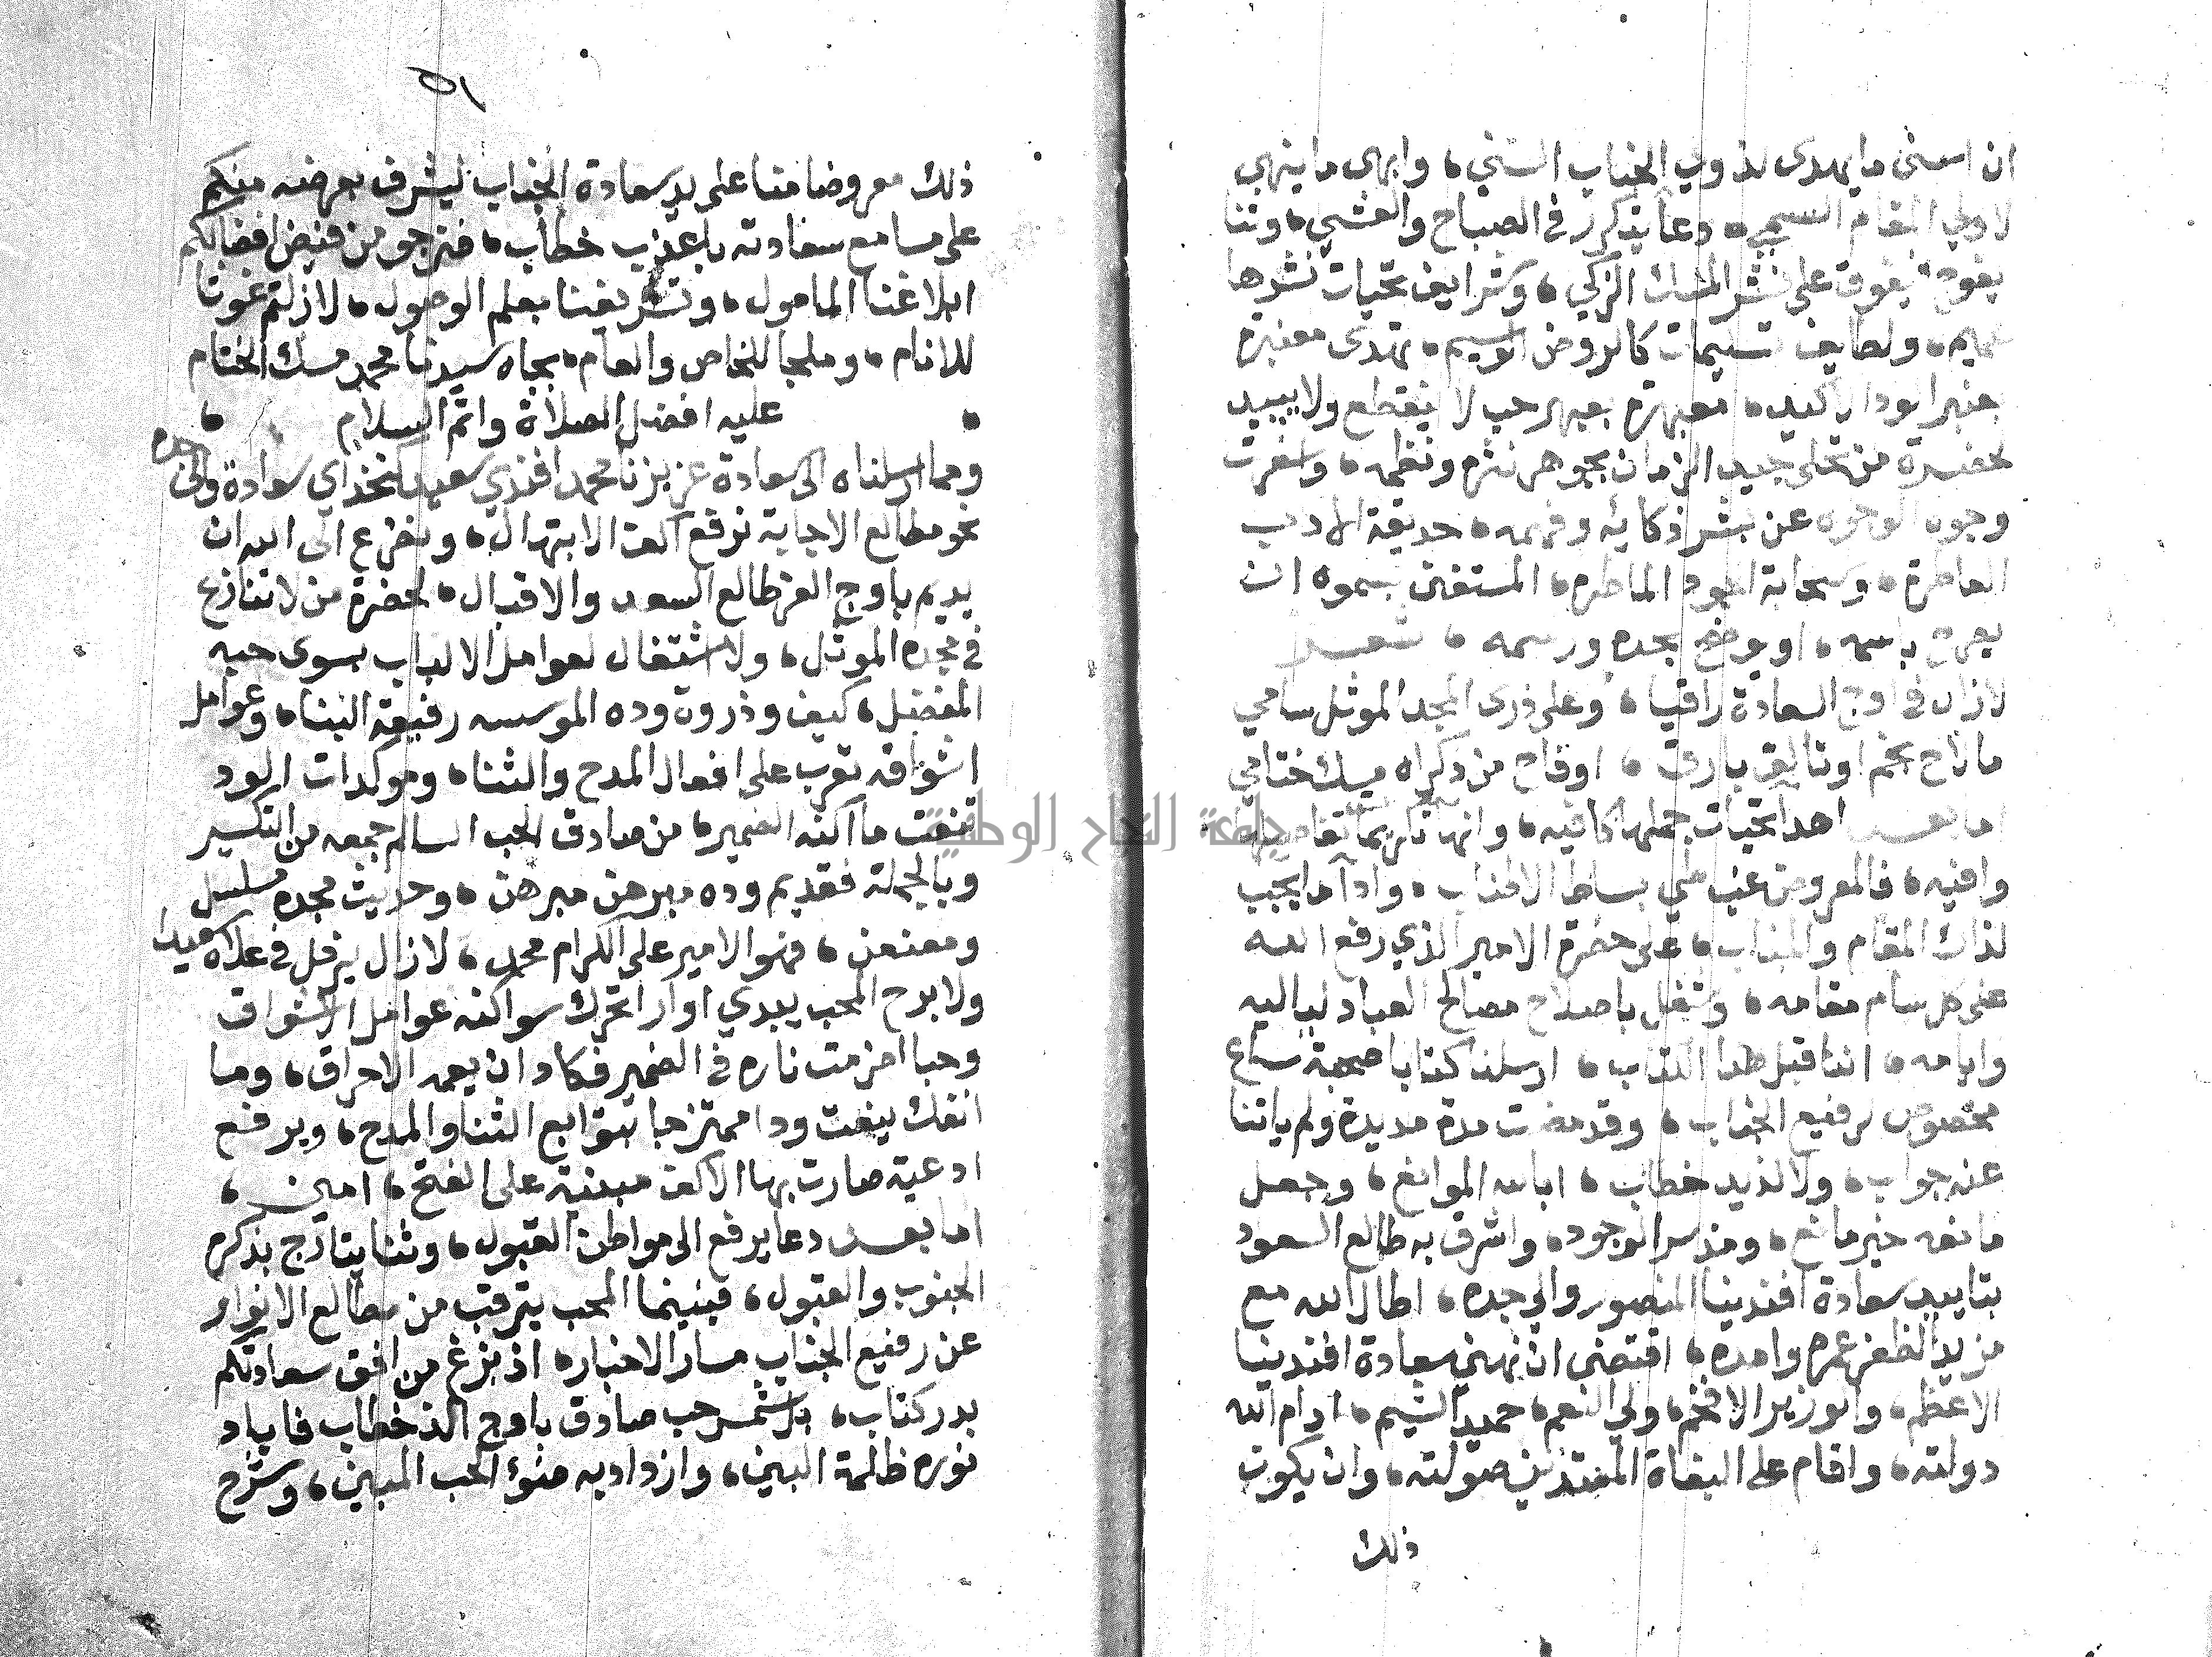 ان اسنى ما يهدى لذوي الجناب السني، وابهى ما ينهى
لاولي المقام السمي، دعا يتكرر في الصباح والعشي، وثنا
يفوح فيفوق على نشر المسك الزكي، وشرايف تحيات نشرها
عميم، ولطايف تسليمات كالروض الوسيم، تهدى معنبرة
بعنبر الود الاكيد، معبهرة بعبهر حب لا ينقطع ولا يبيد
لحضرة من تحلى جيد الزمان بجوهر نثره ونظمه، واسفرت
وجوه الوجوه عن بشر ذكائه وفهمه، حديقة الادب
العاطرة، وسحابة الجود الماطره، المستغني بسموه ان
يعرف باسمه، او يوضح بحده ورسمه، سعيد
لا زال في اوج السعادة راقيا، وعلى ذرى المجد الموثل سامي
ما لاح نجم او تالق بارق، او فاح من ذكراه مسك ختامي
اما بعد اهدا تحيات جملها كافيه، وانها تكريمات تفاصيلها
وافيه، فالمعروض غب طي بساط الاطناب، وادآ ما يجب
لذاك المقام والجناب، على حضرة الامير الذي رفع الله
على كل سام مقامه، وشغل باصلاح مصالح العباد لياليه
وايامه، اننا قبل هذا الكتاب، ارسلنا كتابا صحبة ساع
مخصوص لرفيع الجناب، وقد مضت مدة مديدة ولم ياتنا
عنه جواب، ولا لذيذ خطاب، ابا الله الموانع، وجعل
مانعه خير مانع، ومذ سر الوجود، واشرق به طالع السعود
بتاييد سعادة افندينا المنصور والي جده، اطال الله مع
مزيد الظفر عمره وامده، اقتضى ان نهني سعادة افندينا
الاعظم، والوزير الافخم، ولي النعم، حميد الشيم، ادام الله
دولته، واقام على البغاة المعتدين صولته، وان يكون
ذلك
٥١
ذلك معروضا منا على يد سعادة الجناب ليشرف بعرضه منكم
على مسامع سعادته باعذب خطاب، فنرجو من فيض افضالكم
ابلاغنا المامول، وتشريفنا بعلم الوصول، لا زلتم غوثا
للانام، وملجا للخاص والعام، بجاه سيدنا محمد مسك الختام
، عليه افضل الصلاة واتم السلام ،
ومما ارسلناه الى سعادة عزيزنا محمد افندي سعيد كتخداي سعادة والي جده
نحو مطالع الاجابة نرفع اكف الابتهال، ونضرع الى الله ان
يديم باوج العز طالع السعد والاقبال، لحضرة من لا تنازع
في مجده الموثل، ولا اشتغال لعوامل الالباب بسوى حبه
المفضل، كيف وذروة وده الموسسه رفيعة البناء، وعوامل
اشواقه تعرب على افعال المدح والثناء، وموكدات الود
تنعت ما اكنه الضمير، من صادق الحب السالم جمعه من التكسير
وبالجملة فقديم وده مبرهن مبرهن، وحديث مجده مسلسل
ومعنعن، فهو الامير على الكرام محمد، لا زال يرفل في علاه سعيدا
ولا برح المحب يبدي اوارا تحرك سواكنه عوامل الاشواق
وحبا اضرمت ناره في الضمير فكاد ان يعمه الاحراق، وما
انفك ينعت ودا ممتزجا بتوابع الثنا والمدح، ويرفع
ادعية صارت بها الاكف مبنية على الفتح، امين،
اما بعد دعا يرفع الى مواطن القبول، وثنا يتارج بذكره
الجنوب والقبول، فبينما المحب يترقب من مطالع الانوار
عن رفيع الجناب مسار الاخبار، اذ بزغ من افق سعادتكم
بدر كتاب، بل شمس حب صادق باوج الذ خطاب فاباد
نوره ظلمة البين، وازداد به ضوء الحب المبين، وشرح
جامعة النجاح الوطنية